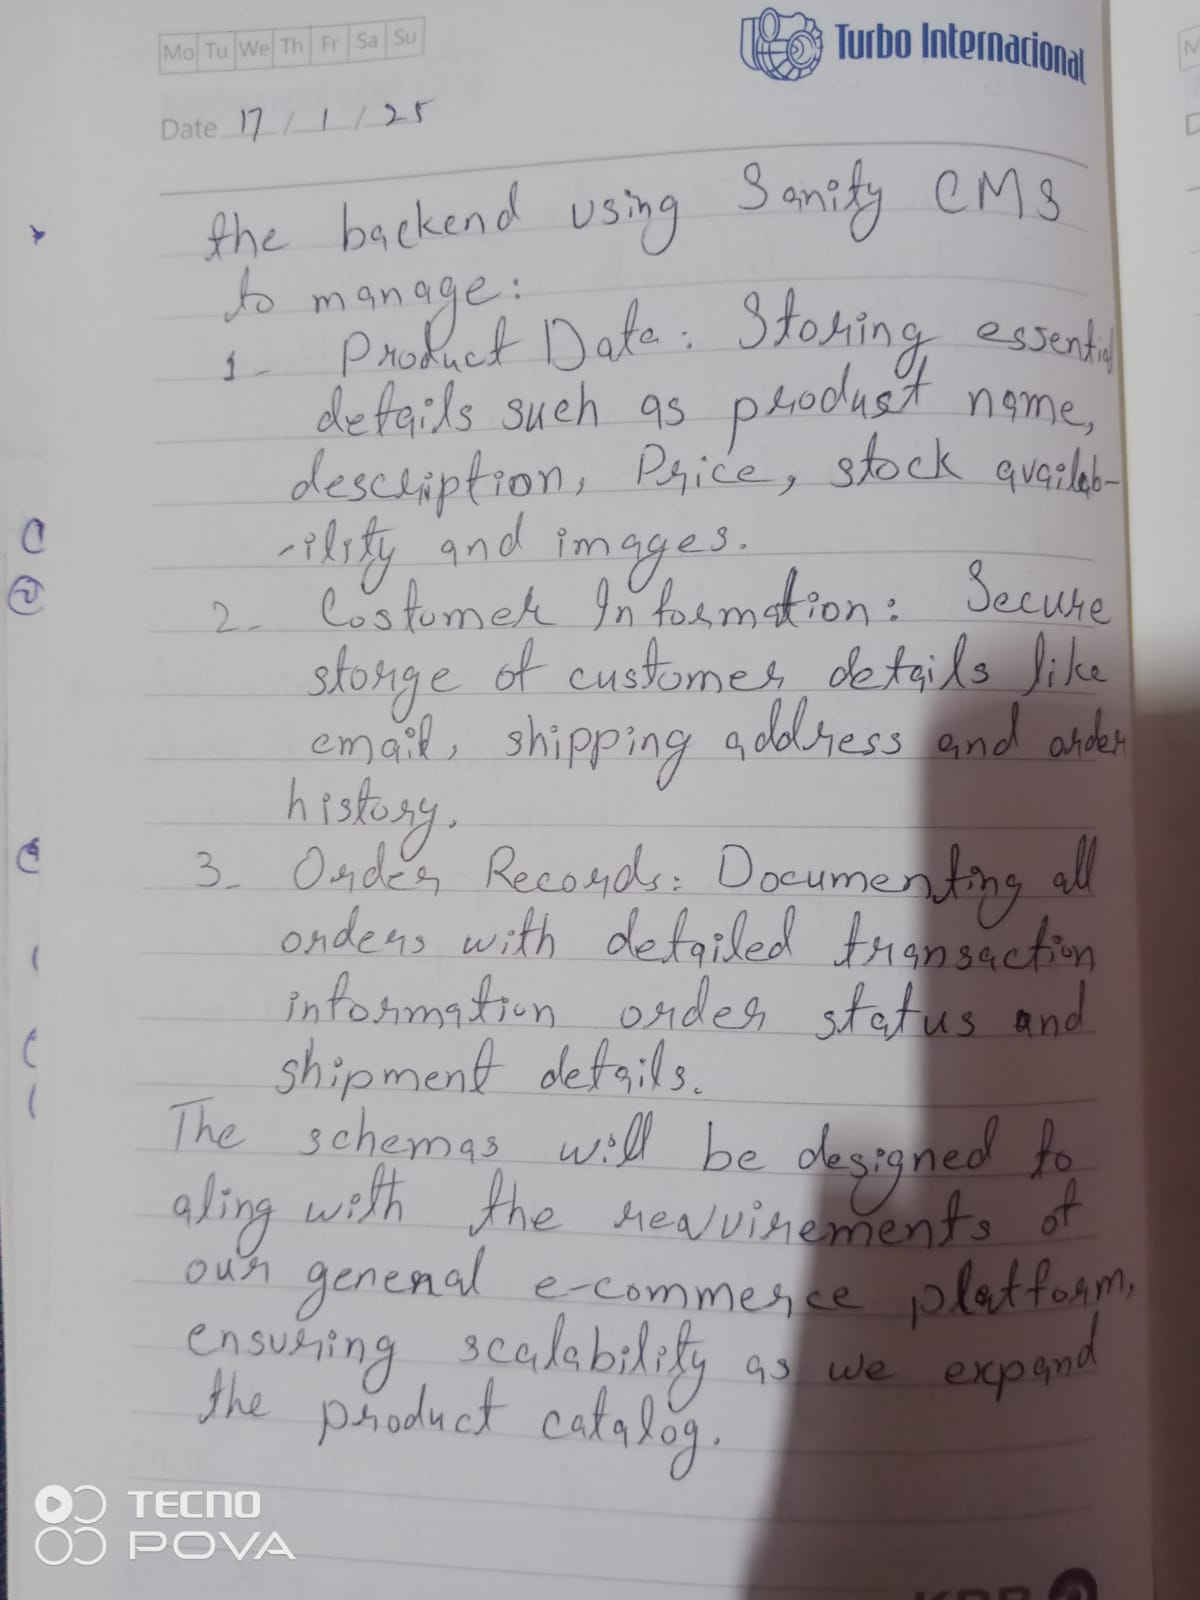 Mo Tu We Th Fr Sa Su
Turbo Internacional
Date 17 / 1 / 25
the backend using Sanity CMS
to manage:
1- Product Data: Storing essential
details such as product name,
description, Price, stock availab-
-ility and images.
2- Costomer Information: Secure
storge of customer details like
email, shipping address and order
history.
3- Order Records: Documenting all
orders with detailed transaction
information order status and
shipment details.
The schemas will be designed to
aling with the reqvirements of
our general e-commerce platform,
ensuring scalability as we expand
the product catalog.
TECNO
POVA